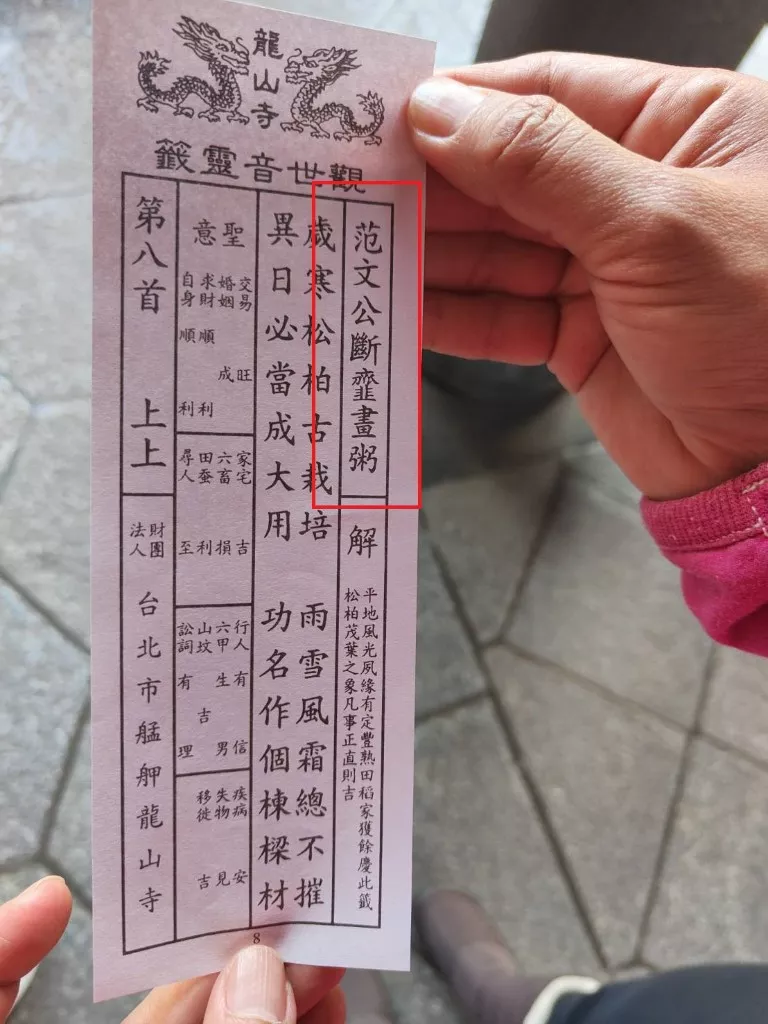 龍山寺
觀世音靈籤
范文公斷齏畫粥
解
平地風光夙緣有定豐熟田稻家獲餘慶此籤
松柏茂葉之象凡事正直則吉
歲寒松柏古栽培 雨雪風霜總不摧
異日必當成大用 功名作個棟樑材
聖意
交易 旺
婚姻 成
求財 順利
自身 順利
家宅 吉
六畜 損
田蚕 利
尋人 至
行人 有信
六甲 生男
山坟 吉
訟詞 有理
疾病 安
失物 見
移徙 吉
第八首 上上
財團法人 台北市艋舺龍山寺
8